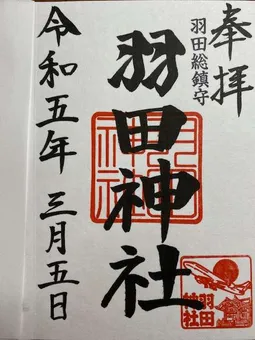 奉拝
羽田総鎮守
羽田神社
令和五年 三月五日
羽田
神社